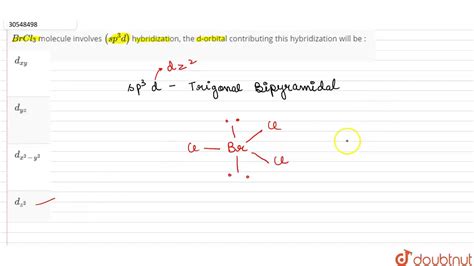 30548498
BrCl₃ molecule involves (sp³d) hybridization, the d-orbital contributing this hybridization will be :
d_xy
d_yz
d_x²−y²
d_z²
dz²
sp³d - Trigonal Bipyramidal
Cl
Cl — Br
Cl
doubtnut